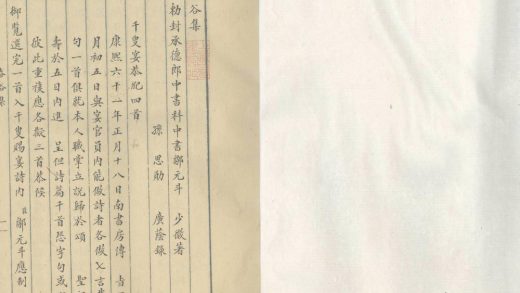 谷集
勅封承德郎中書科中書鄭元斗 少微著
孫 思勛 廣蔭錄
千叟宴恭紀四首
康熙六十一年正月十八日南書房傳 旨
月初五日與宴官員內能做詩者各做七言
句一首俱就本人職掌立說歸於頌 聖
壽於五日內進 呈但詩篇千首恐字句或
故此重複應各擬三首恭候
御覽選定一首入千叟賜宴詩內 臣鄭元斗應制